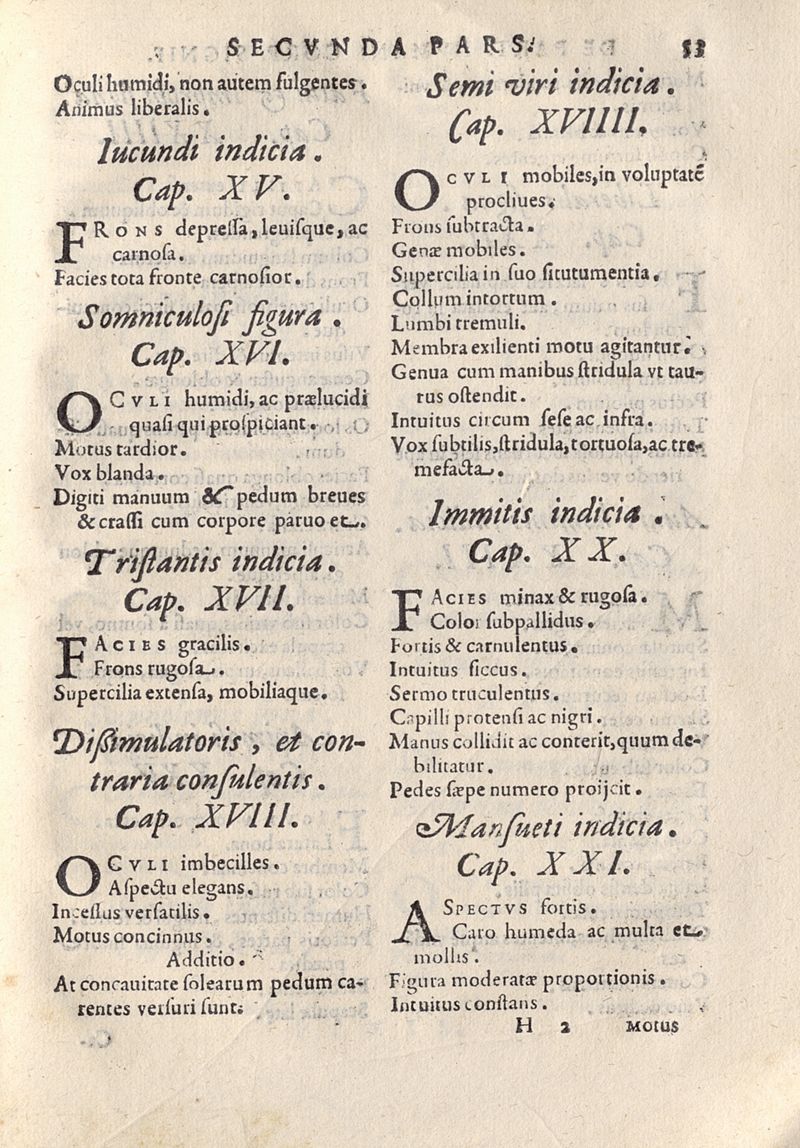 SECVNDA PARS. 53
Oculi humidi, non autem fulgentes.
Animus liberalis.
Iucundi indicia.
Cap. XV.
FRONS depreſſa, leuiſque, ac
carnoſa.
Facies tota fronte carnoſior.
Somniculoſi figura.
Cap. XVI.
OCVLI humidi, ac prælucidi
quaſi qui proſpiciant.
Motus tardior.
Vox blanda.
Digiti manuum & pedum breues
& craſſi cum corpore paruo et.
Triſtantis indicia.
Cap. XVII.
FACIES gracilis.
Frons rugoſa.
Supercilia extenſa, mobiliaque.
Diſſimulatoris, et con-
traria conſulentis.
Cap. XVIII.
OCVLI imbecilles.
Aſpectu elegans.
Inceſſus verſatilis.
Motus concinnus.
Additio.
At concauitate ſolearum pedum ca-
rentes verſuri ſunt.
Semi viri indicia.
Cap. XVIIII.
OCVLI mobiles, in voluptatē
procliues.
Frons ſubtracta.
Genæ mobiles.
Supercilia in ſuo ſitutumentia.
Collum intortum.
Lumbi tremuli.
Membra exilienti motu agitantur.
Genua cum manibus ſtridula vt tau-
rus oſtendit.
Intuitus circum ſeſe ac infra.
Vox ſubtilis, ſtridula, tortuoſa, ac tre-
mefacta.
Immitis indicia.
Cap. XX.
FACIES minax & rugoſa.
Color ſubpallidus.
Fortis & carnulentus.
Intuitus ſiccus.
Sermo truculentus.
Capilli protenſi ac nigri.
Manus collidit ac conterit, quum de-
bilitatur.
Pedes ſæpe numero proijcit.
Manſueti indicia.
Cap. XXI.
ASPECTVS fortis.
Caro humeda ac multa et
mollis.
Figura moderatæ proportionis.
Intuitus conſtans.
H 2 Motus